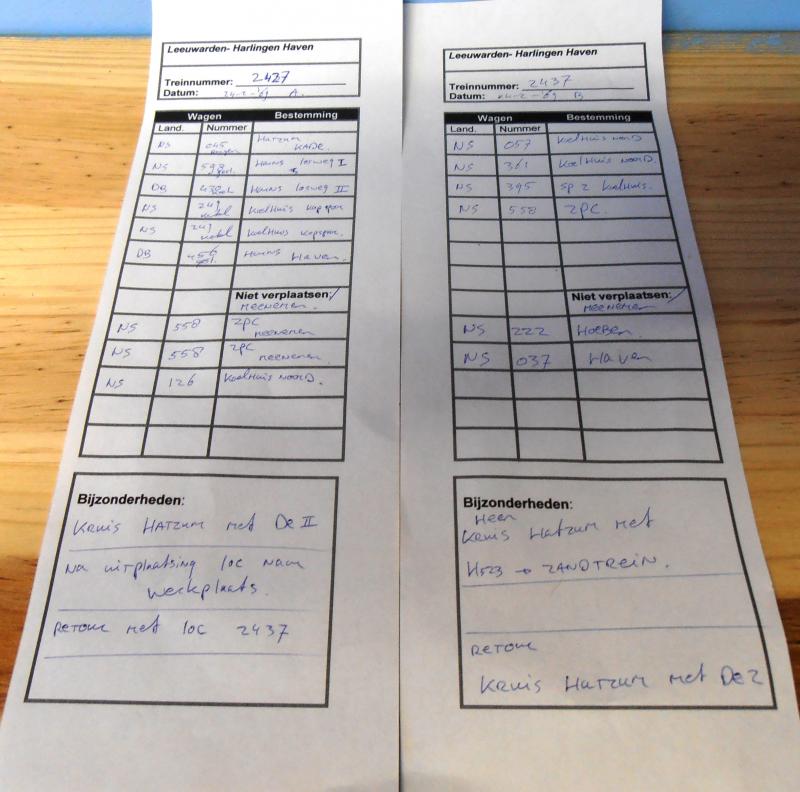 Leeuwarden- Harlingen Haven
Treinnummer: 2427
Datum: 24-2-69 A.
Wagen Bestemming
Land. Nummer
NS 045 Hatzum KADE.
NS Harns losweg I
DB Harns losweg II
NS 241 KoelHuis kopspoor
NS 241 KoelHuis kopspoor.
DB Harns Haven.
Niet verplaatsen:/
meenemen.
NS 558 ZPC meenemen
NS 558 ZPC meenemen.
NS 126 KoelHuis NOORD.
Bijzonderheden:
Kruis HATZUM met De II
Na uitplaatsing loc naar
werkplaats.
Retour met loc 2437
Leeuwarden- Harlingen Haven
Treinnummer: 2437
Datum: 24-2-69 B
Wagen Bestemming
Land. Nummer
NS 057 KoelHuis NOORD
NS 361 KoelHuis NOORD.
NS 395 SP 2 KoelHuis.
NS 558 ZPC.
Niet verplaatsen:/
meenemen
NS 222 Hoeben.
NS 037 Haven
Bijzonderheden:
Heen
Kruis Hatzum met
H523 → ZANDTREIN.
Retour
Kruis Hatzum met De2